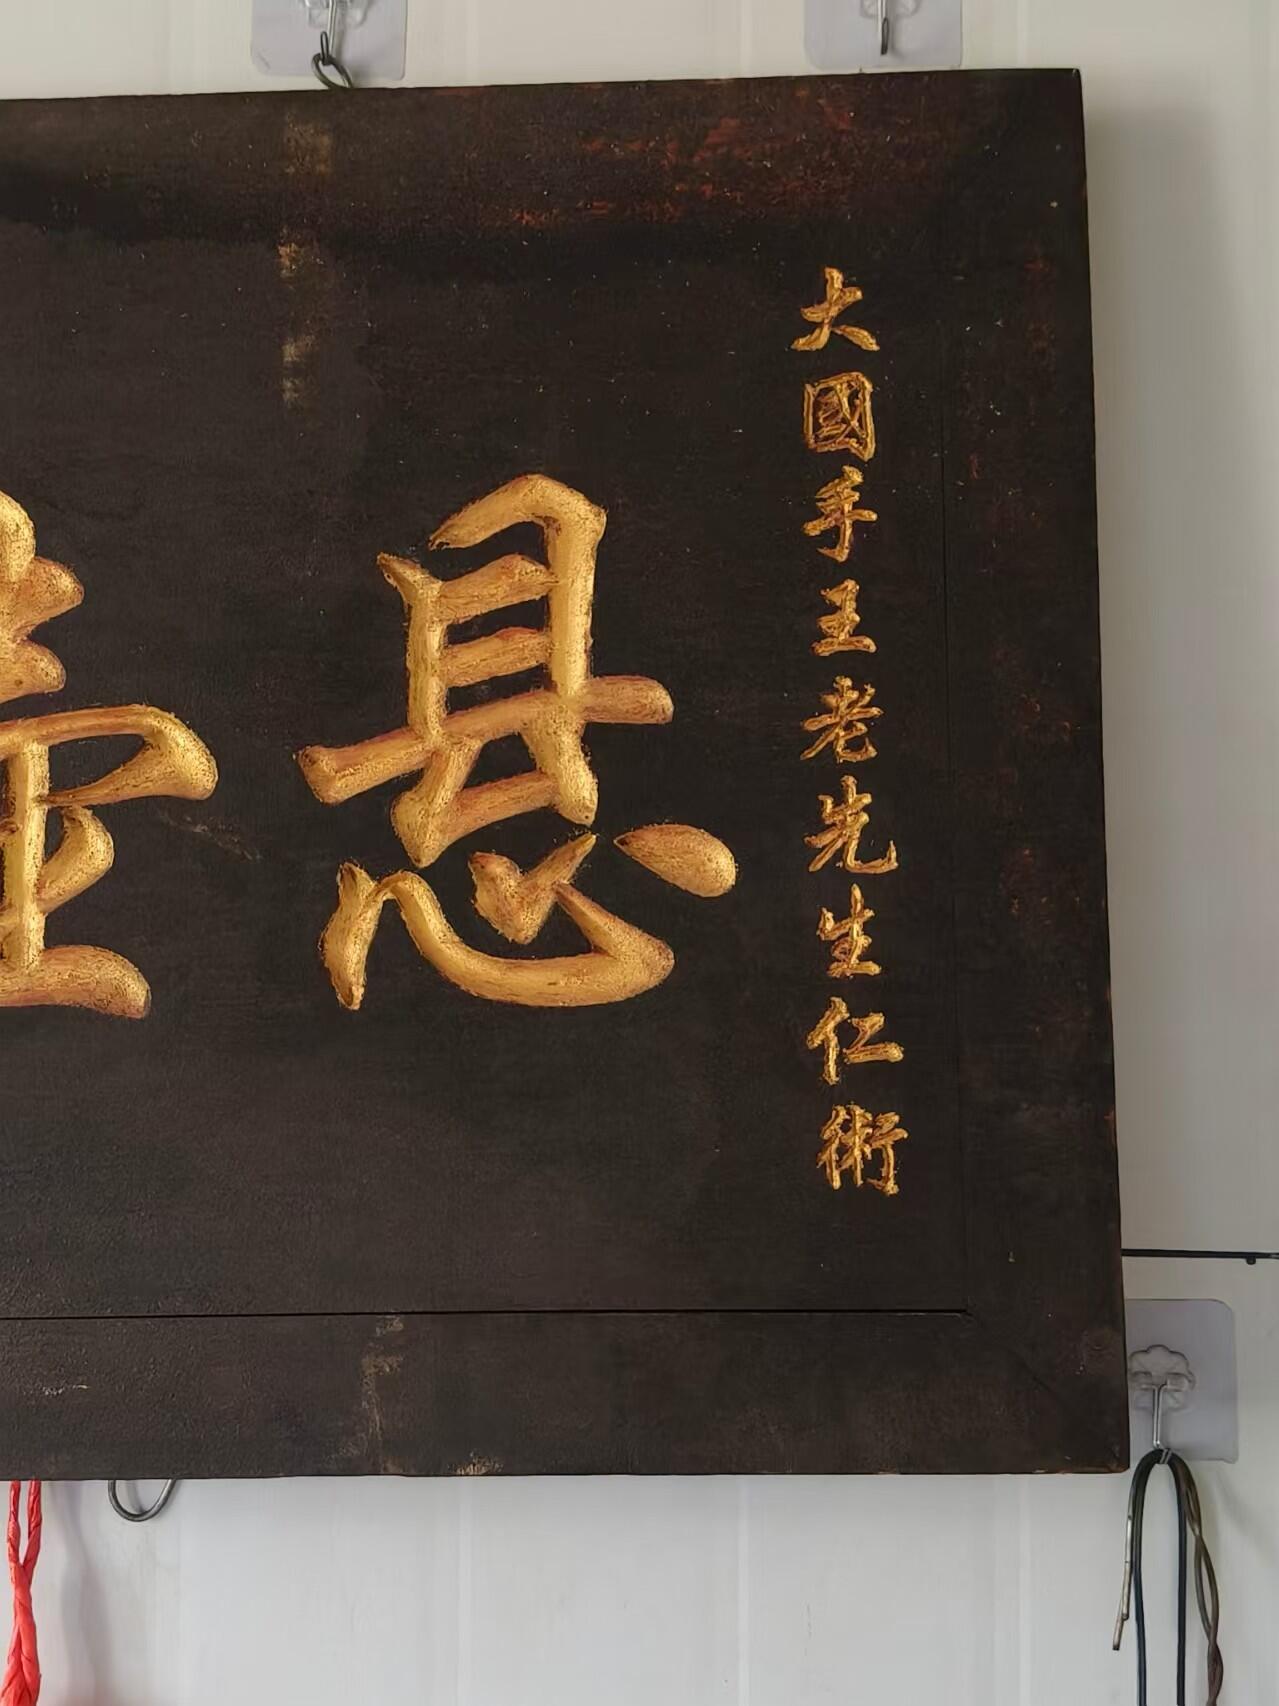 大國手王老先生仁術
悬壺